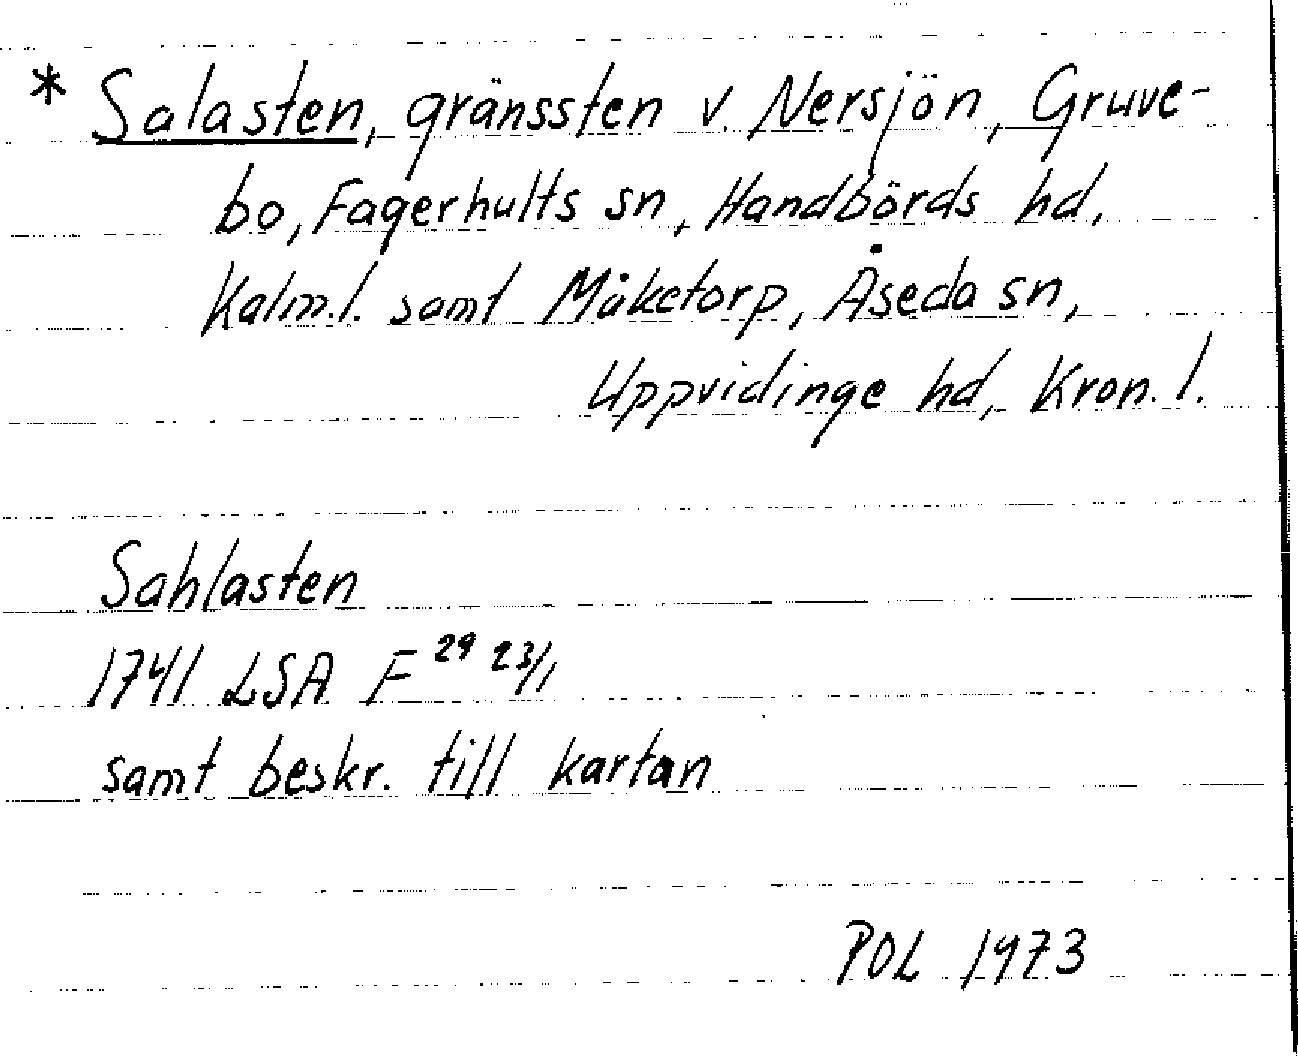 * Salasten, gränssten v. Nersjön, Gruve-
bo, Fagerhults sn, Handbörds hd,
Kalm.l. samt Måketorp, Åseda sn,
Uppvidinge hd, Kron. l.
Sahlasten
1741 LSA F 29 23/1
samt beskr. till kartan
POL 1973